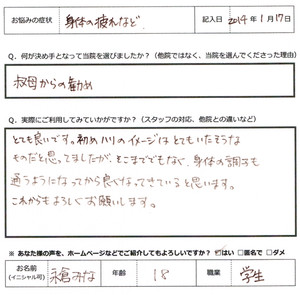 お悩みの症状 身体の疲れなど 記入日 2014年1月17日
Q. 何が決め手となって当院を選びましたか？（他院ではなく、当院を選んでくださった理由）
叔母からの勧め
Q. 実際にご利用してみていかがですか？（スタッフの対応、他院との違いなど）
とても良いです。初めハリのイメージはとてもいたそうな
ものだと思ってましたが、そこまででもなく、身体の調子も
通うようになってから良くなってきていると思います。
これからもよろしくお願いします。
※ あなた様の声を、ホームページなどでご紹介してもよろしいですか？ ☑はい □匿名で □ダメ
お名前 永倉みな 年齢 18 職業 学生
（イニシャル可）